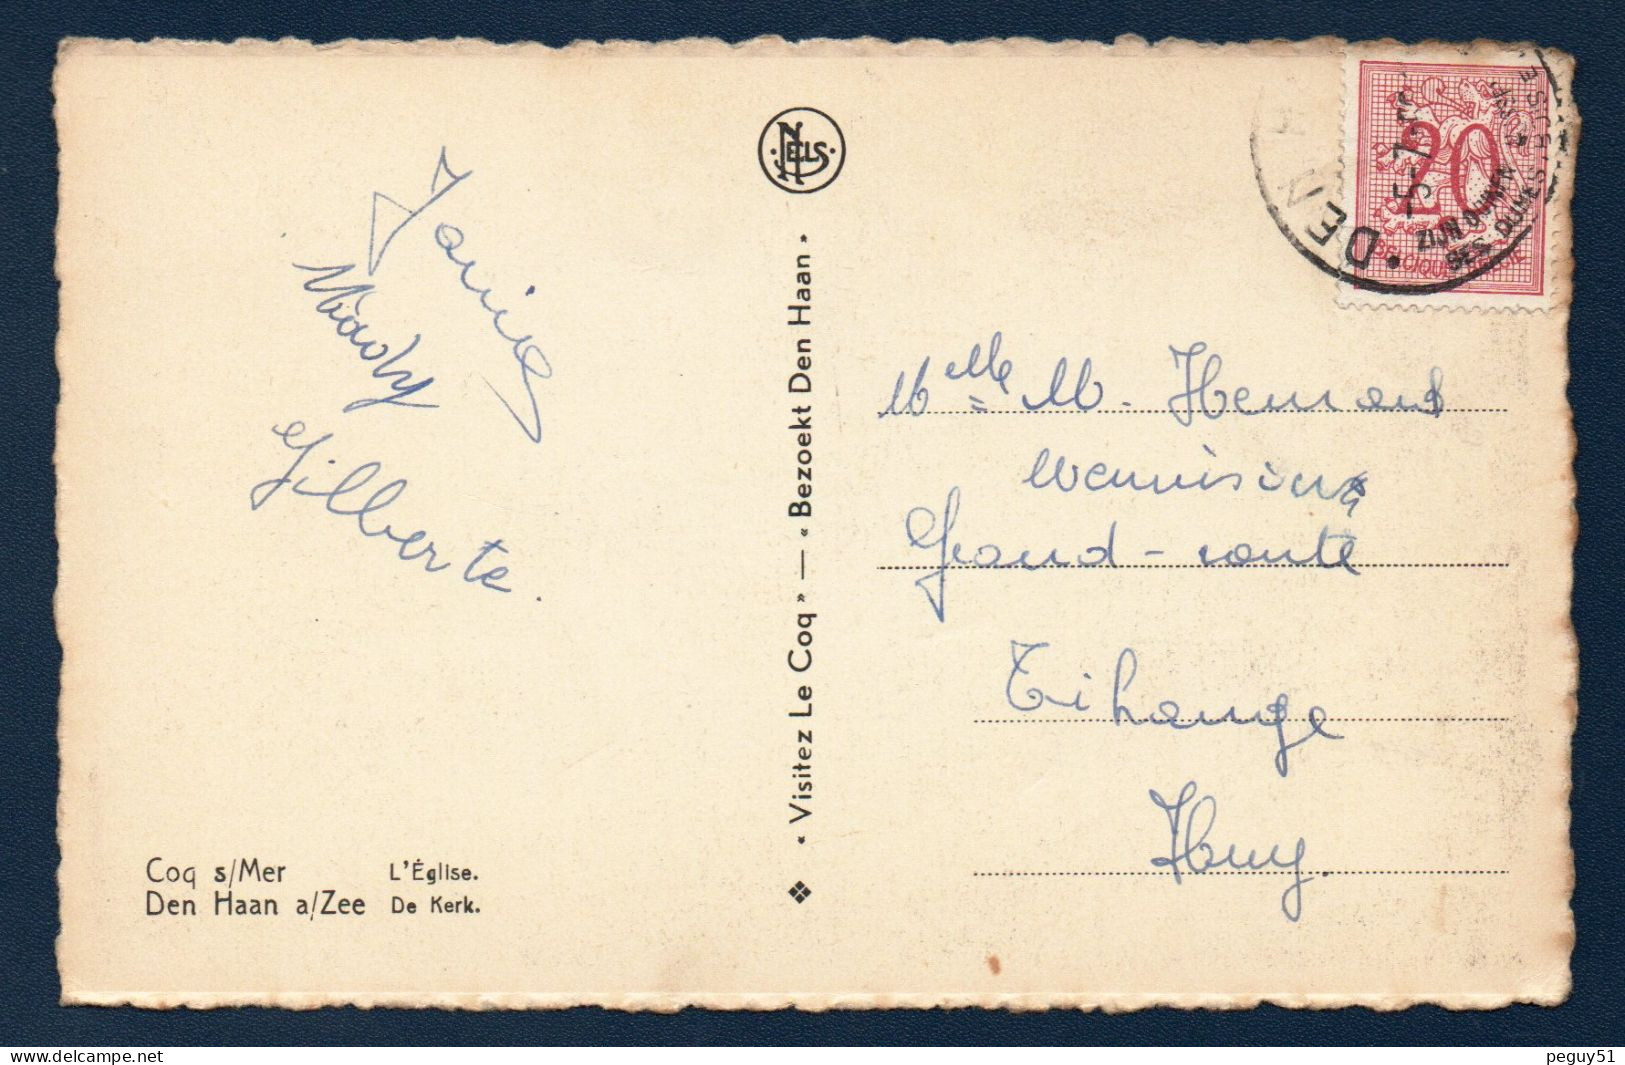 Janine
Maddy
Gilberte.
Coq s/Mer L'Église.
Den Haan a/Zee De Kerk.
NELS
❖ « Visitez Le Coq » — « Bezoekt Den Haan »
20
BELGIQUE BELGIE
DEN HAAN
-5-7-
ZIJN DUINEN
SES DUNES
Melle M. Hemard
Grand-route
Tihange
Huy.
www.delcampe.net
peguy51